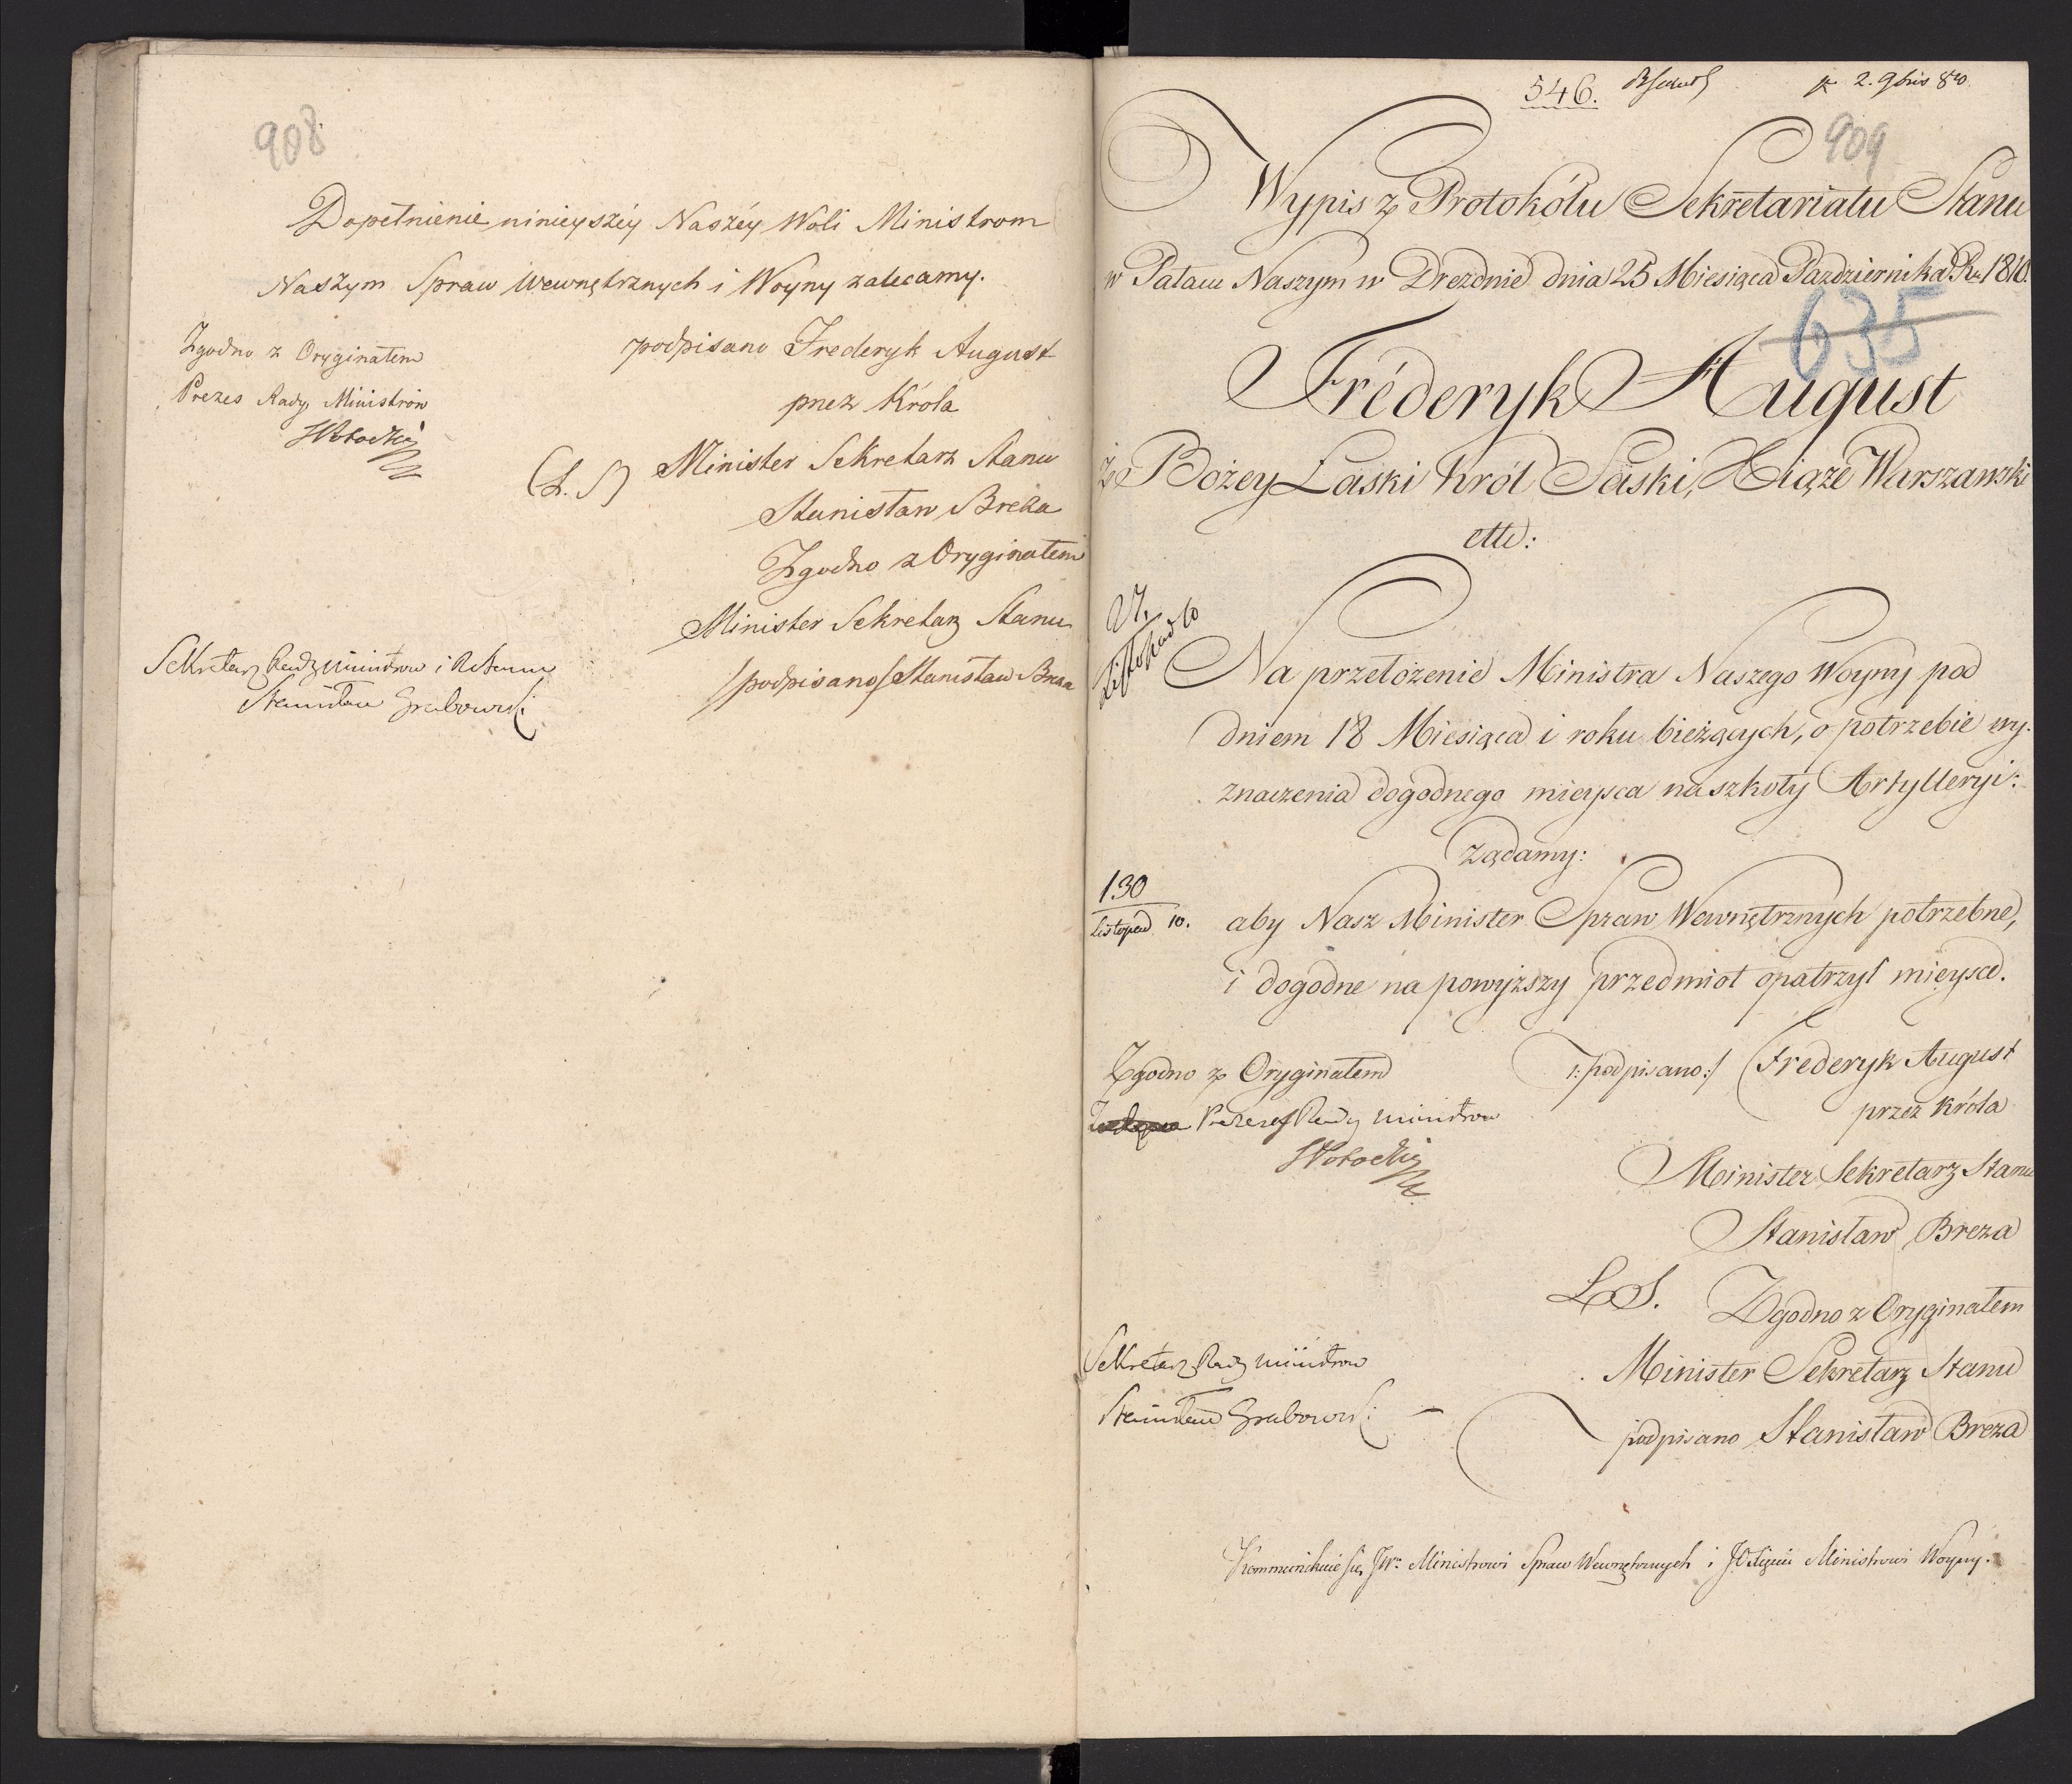 908
Dopełnienie ninieyszéy Naszéy Woli Ministrom
Naszym Spraw Wewnętrznych i Woyny zalecamy.
Zgodno z Oryginałem
Prezes Rady Ministrow
SPotocki
podpisano Frederyk August
przez Króla
(L. S) Minister Sekretarz Stanu
Stanisław Breza
Zgodno z Oryginałem
Minister Sekretarz Stanu
/podpisano/ Stanisław Breza
Sekretarz Rady Ministrow i R Stanu
Stanisław Grabowski
546. 2. 9bris 810.
909
Wypis z Protokółu Sekretariatu Stanu
w Pałacu Naszym w Dreźdnie dnia 25 Miesiąca Pazdziernika Ru 1810.
635
Fréderyk August
z Bożey Łaski Król Saski, Xiąże Warszawski
ettc:
27.
Listopad 10
Na przełożenie Ministra Naszego Woyny pod
dniem 18 Miesiąca i roku bieżących, o potrzebie wy-
znaczenia dogodnego mieysca na szkoły Artylleryi:
żądamy:
130
Listopad 10.
aby Nasz Minister Spraw Wewnętrznych potrzebne,
i dogodne na powyższy przedmiot opatrzył mieysce.
Zgodno z Oryginałem
Prezes Rady Ministrow
SPotocki
/:podpisano:/ Frederyk August
przez Króla
Minister Sekretarz Stanu
Stanisław Breza
L. S. Zgodno z Oryginałem
Minister Sekretarz Stanu
podpisano Stanisław Breza
Sekretarz Rady Ministrow
Stanisław Grabowski
Kommunikuie się JW. Ministrowi Spraw Wewnętrznych i JO Xięciu Ministrowi Woyny.